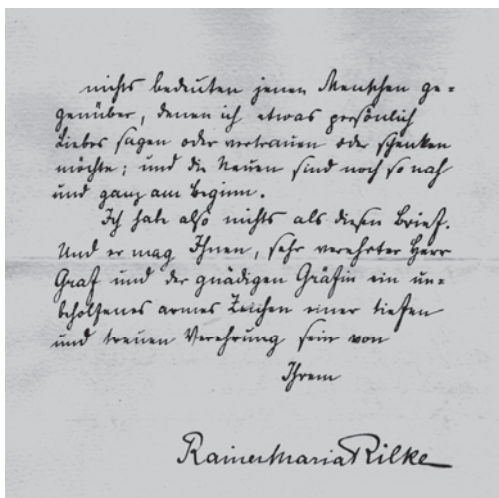 nichts bedeuten jenen Menschen ge-
genüber, denen ich etwas persönlich
Liebes sagen oder vertrauen oder schenken
möchte; und die Neuen sind noch so nah
und ganz am Beginn.
Ich habe also nichts als diesen Brief.
Und er mag Ihnen, sehr verehrter Herr
Graf und der gnädigen Gräfin ein un-
beholfenes armes Zeichen einer tiefen
und treuen Verehrung sein von
Ihrem
Rainer Maria Rilke